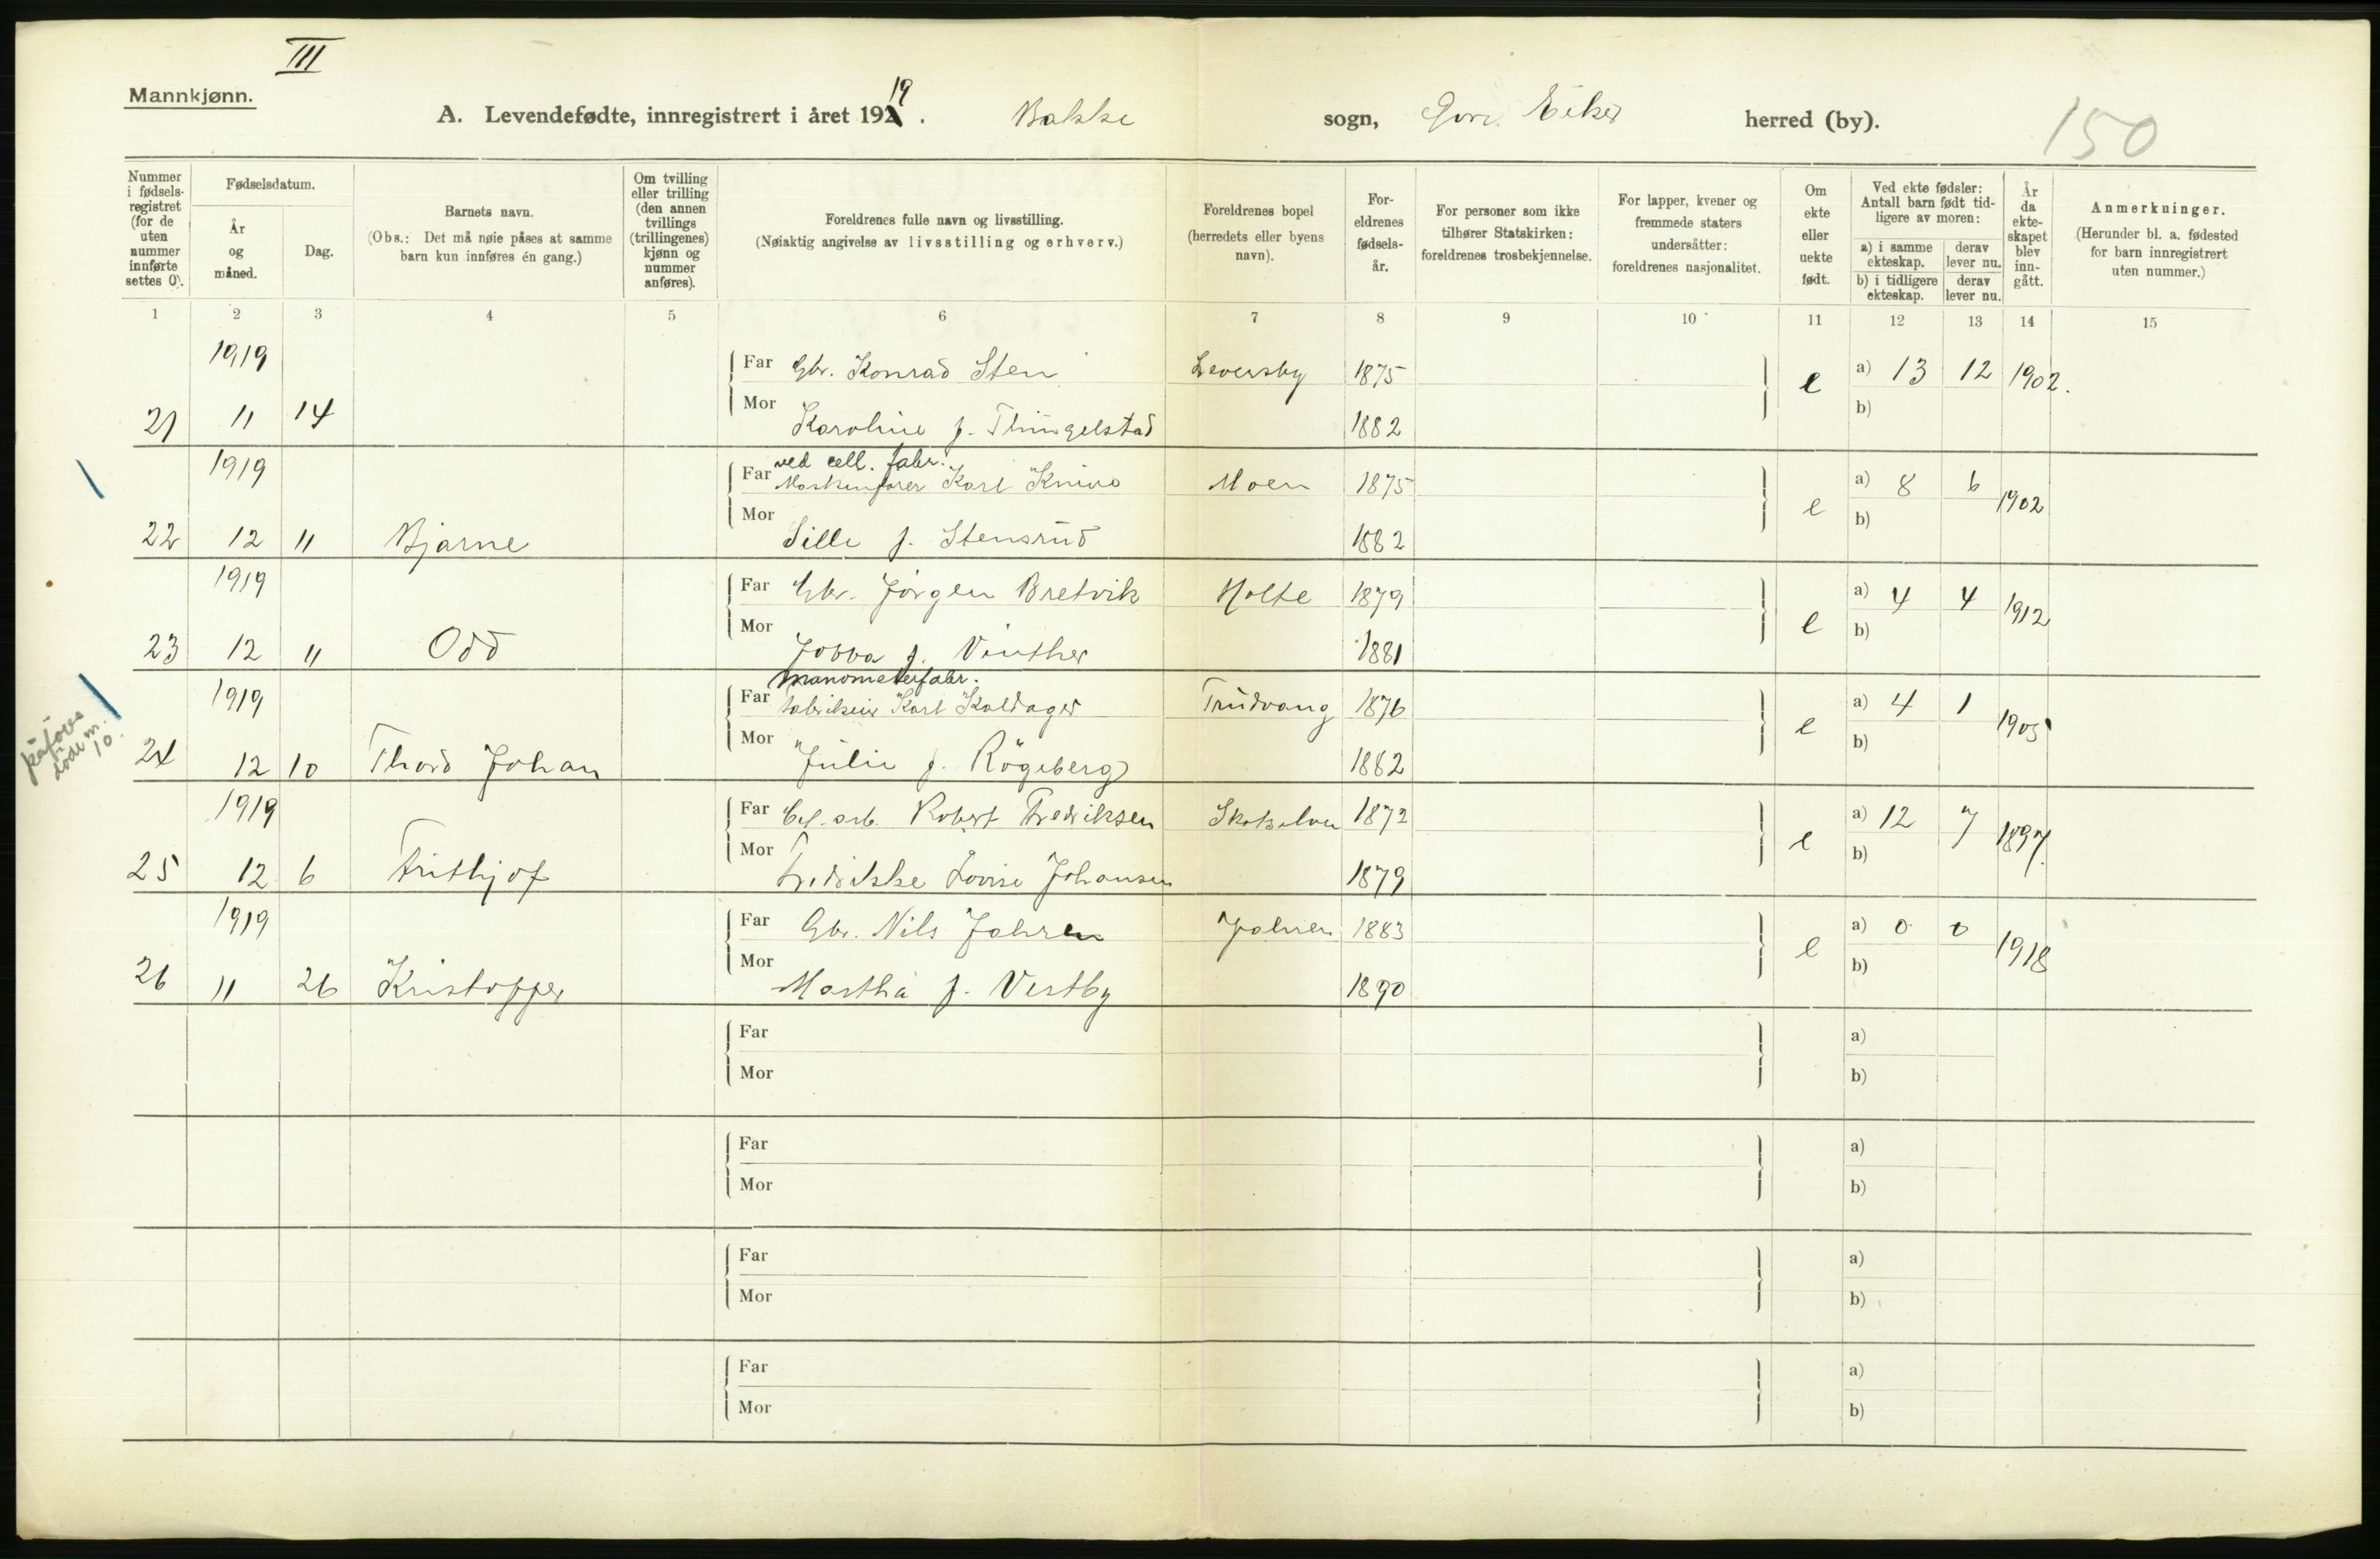 III
Mannkjønn.
A. Levendefødte, innregistrert i året 19219. Bakke sogn, Øvre Eiker herred (by). 150
Nummer i fødsels-registret (for de uten nummer innførte settes 0).
Fødselsdatum.
År og måned.
Dag.
Barnets navn.
(Obs.: Det må nøie påses at samme barn kun innføres én gang.)
Om tvilling eller trilling (den annen tvillings (trillingenes) kjønn og nummer anføres).
Foreldrenes fulle navn og livsstilling.
(Nøiaktig angivelse av livsstilling og erhverv.)
Foreldrenes bopel (herredets eller byens navn).
For-eldrenes fødsels-år.
For personer som ikke tilhører Statskirken: foreldrenes trosbekjennelse.
For lapper, kvener og fremmede staters undersåtter: foreldrenes nasjonalitet.
Om ekte eller uekte født.
Ved ekte fødsler: Antall barn født tid-ligere av moren:
a) i samme ekteskap. derav lever nu.
b) i tidligere ekteskap. derav lever nu.
År da ekte-skapet blev inn-gått.
Anmerkninger.
(Herunder bl. a. fødested for barn innregistrert uten nummer.)
1 2 3 4 5 6 7 8 9 10 11 12 13 14 15
1919 Far Gbr. Konrad Sten 1875 e a) 13 12 1902.
21 11 14 Mor Karoline f. Thingelstad 1882 b)
ved cell. fabr.
1919 Far Karl Moen 1875 e a) 8 6 1902
22 12 11 Bjarne Mor Sille f. Stensrud 1882 b)
1919 Far Gbr. Jørgen Bretvik Holte 1879 e a) 4 4 1912
23 12 11 Odd Mor f. Vinther 1881 b)
manometerfabr.
1919 Far Karl Kaldager Trudvang 1876 e a) 4 1 1905
24 12 10 Thord Johan Mor Julie f. Røgeberg 1882 b)
død m. 10.
1919 Far Cel. arb. Robert Fredriksen Skotselven 1872 e a) 12 7 1897.
25 12 6 Frithjof Mor Fredrikke Lovise Johansen 1879 b)
1919 Far Gbr. Nils Jahren Jahren 1883 e a) 0 0 1918
26 11 26 Kristoffer Mor Martha f. Vestby 1890 b)
Far a)
Mor b)
Far a)
Mor b)
Far a)
Mor b)
Far a)
Mor b)